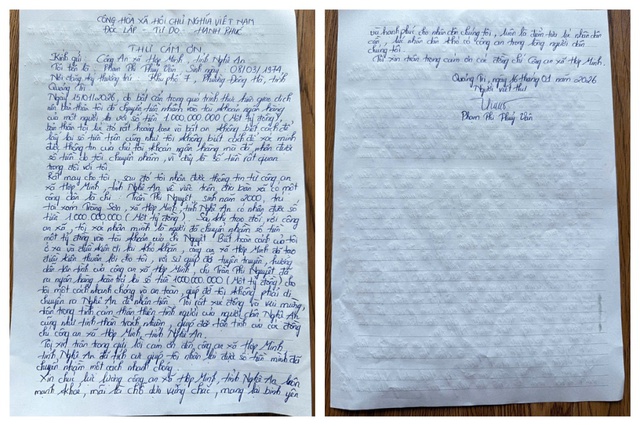 CỘNG HÒA XÃ HỘI CHỦ NGHĨA VIỆT NAM
ĐỘC LẬP - TỰ DO - HẠNH PHÚC
THƯ CẢM ƠN
Kính gửi: Công An xã Hợp Minh, tỉnh Nghệ An
Tôi tên là: Phạm Thị Thúy Vân Sinh ngày: 08/03/1974
Nơi đăng ký thường trú: Khu phố 7, Phường Đông Hà, tỉnh
Quảng Trị
Ngày 15/01/2026, do bất cẩn trong quá trình thực hiện giao dịch
nên bản thân tôi đã chuyển nhầm vào tài khoản ngân hàng
của một người lạ với số tiền 1.000.000.000 (Một tỷ đồng),
bản thân tôi lúc đó rất hoảng loạn và bất an không biết cách để
lấy lại số tiền trên cũng như tôi không biết cách để xác minh
được thông tin của chủ tài khoản ngân hàng mà đã nhận được
số tiền do tôi chuyển nhầm, vì đây là số tiền rất quan
trọng đối với tôi.
Rất may cho tôi, sau đó tôi nhận được thông tin từ công an
xã Hợp Minh, tỉnh Nghệ An về việc trên địa bàn xã có một
công dân là chị Trần Thị Nguyệt, sinh năm 2000, trú
tại xóm Tràng Sơn, xã Hợp Minh, tỉnh Nghệ An có nhận được số
tiền 1.000.000.000 (Một tỷ đồng). Sau khi trao đổi với công
an xã, tôi xác nhận mình là người đã chuyển nhầm số tiền
một tỷ đồng vào tài khoản của chị Nguyệt. Biết hoàn cảnh của tôi
ở xa và điều kiện đi lại khó khăn, công an xã Hợp Minh đã tạo
điều kiện thuận lợi cho tôi, với sự giúp đỡ tuyên truyền, hướng
dẫn tận tình của công an xã Hợp Minh, chị Trần Thị Nguyệt đã
ra ngân hàng hoàn trả lại số tiền 1.000.000.000 (Một tỷ đồng) cho
tôi một cách nhanh chóng và an toàn, giúp đỡ tôi không phải di
chuyển ra Nghệ An để nhận tiền. Tôi rất xúc động và vui mừng,
trân trọng tình cảm thân thiện tình người của người dân Nghệ An
cũng như tinh thần trách nhiệm, giúp đỡ tận tình của các đồng
chí công an xã Hợp Minh, tỉnh Nghệ An.
Tôi xin trân trọng gửi lời cảm ơn đến công an xã Hợp Minh,
tỉnh Nghệ An đã tích cực giúp tôi nhận lại được số tiền mình đã
chuyển nhầm một cách nhanh chóng.
Xin chúc lực lượng công an xã Hợp Minh, tỉnh Nghệ An luôn
mạnh khỏe, mãi là chỗ dựa vững chắc, mang lại bình yên
và hạnh phúc cho nhân dân chúng tôi, luôn là niềm tin của nhân dân
chúng tôi.
Tôi xin trân trọng cảm ơn các đồng chí công an xã Hợp Minh.
Quảng Trị, ngày 16 tháng 01 năm 2026
Người viết thư
Phạm Thị Thúy Vân